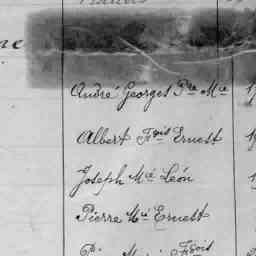 André Georges Pre Mie
Albert Fois Ernest
Joseph Mie Léon
Pierre Mie Ernest